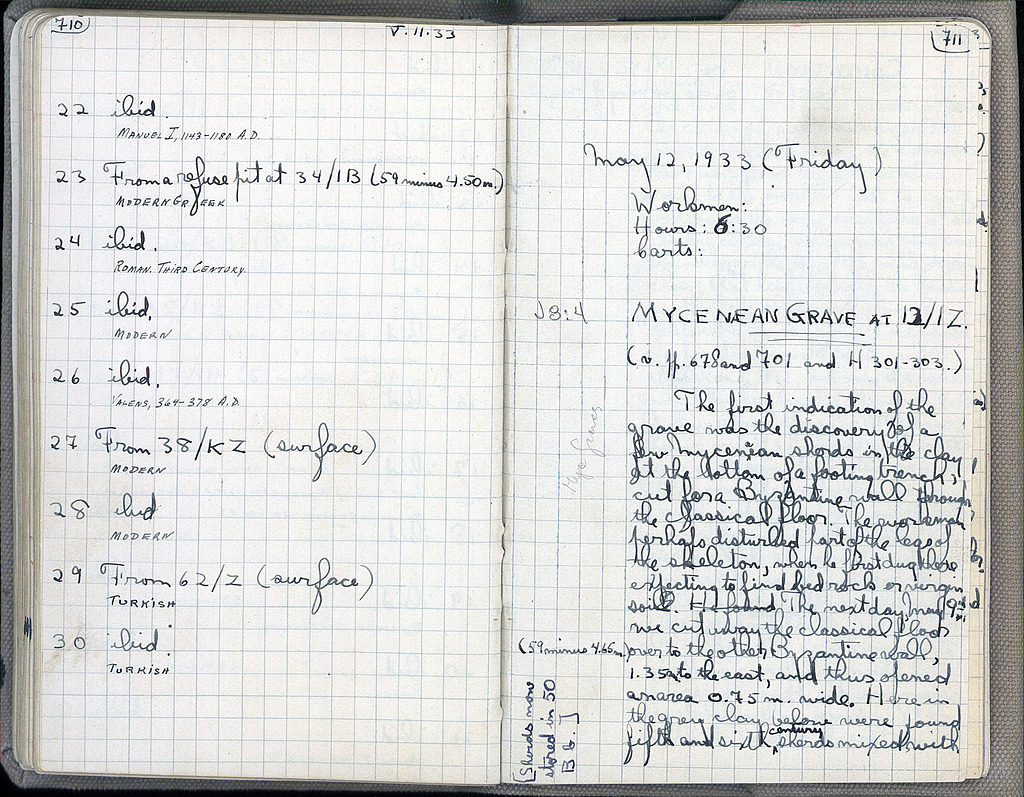 710
V.11.33
22 ibid.
MANUEL I, 1143-1180 A.D.
23 From a refuse pit at 34/IB (59 minus 4.50m.)
MODERN GREEK
24 ibid.
ROMAN. THIRD CENTURY.
25 ibid.
MODERN
26 ibid.
VALENS, 364-378 A.D.
27 From 38/KZ (surface)
MODERN
28 ibid
MODERN
29 From 62/Z (surface)
TURKISH
30 ibid.
TURKISH
711
May 12, 1933 (Friday)
Workmen:
Hours: 6:30
Carts:
J8:4
MYCENÆAN GRAVE AT 12/IZ.
(v. pp. 678 and 701 and H 301-303.)
The first indication of the
grave was the discovery of a
few Mycenæan sherds in the clay
at the bottom of a footing trench,
cut for a Byzantine wall through
the classical floor. The workman
perhaps disturbed part of the legs of
the skeleton, when he first dug there
expecting to find bedrock or virgin
soil. He found The next day, May 9
we cut away the classical floor
(59 minus 4.65m.) over to the other Byzantine wall,
1.35 to the east, and thus opened
an area 0.75 m. wide. Here in
the grey clay below were found
fifth and sixth century sherds mixed with
[Sherds now
stored in 50
B b. J